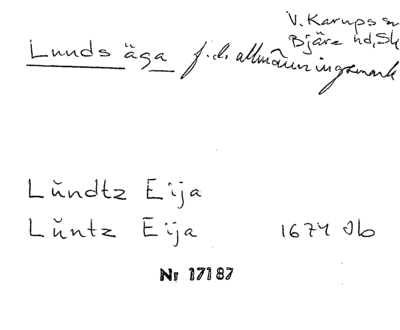 V. Karups sn
Bjäre hd, Sk
Lunds äga f.d. allmänningsmark
Lŭndtz Eija
Lŭntz Eija 1674 Jb
Nr 17187